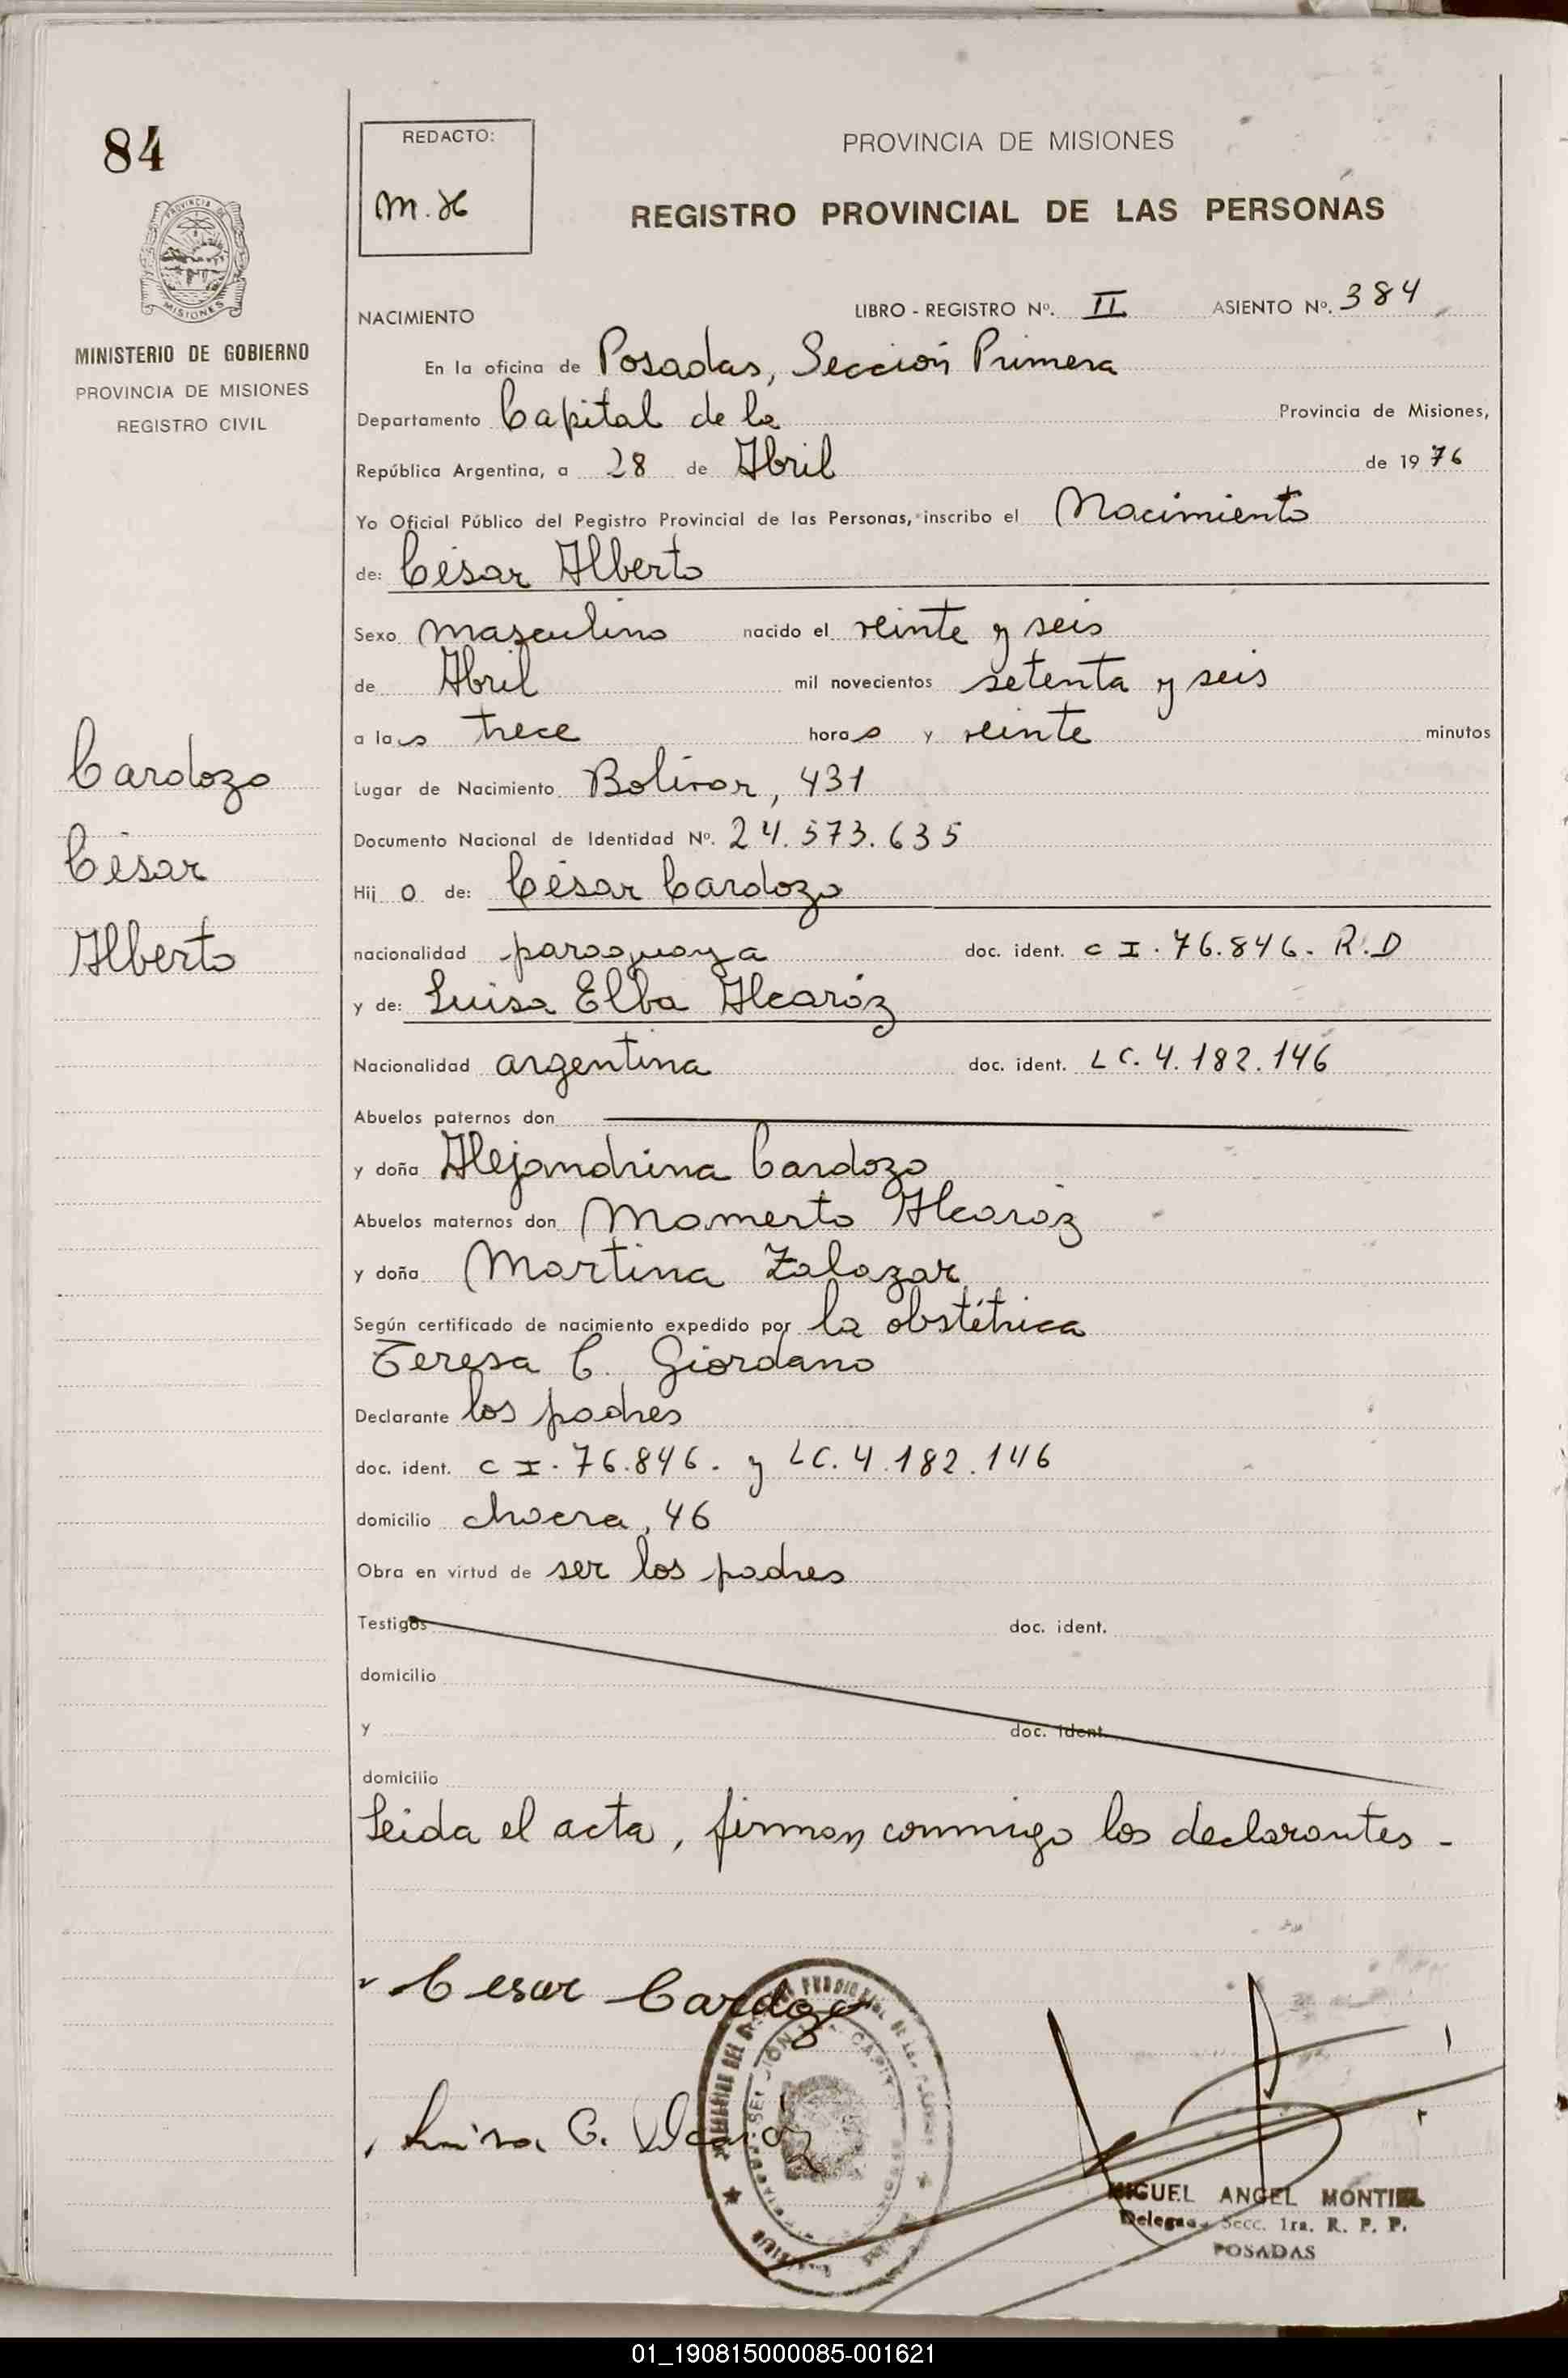 84
REDACTO:
M.H
PROVINCIA DE MISIONES
REGISTRO PROVINCIAL DE LAS PERSONAS
MISIONES
MINISTERIO DE GOBIERNO
PROVINCIA DE MISIONES
REGISTRO CIVIL
NACIMIENTO LIBRO - REGISTRO Nº. II ASIENTO Nº. 384
En la oficina de Posadas, Sección Primera
Departamento Capital de la Provincia de Misiones,
República Argentina, a 28 de Abril de 1976
Yo Oficial Público del Registro Provincial de las Personas, inscribo el Nacimiento
de: César Alberto
Sexo masculino nacido el veinte y seis
de Abril mil novecientos setenta y seis
a las trece horas y veinte minutos
Cardozo
Lugar de Nacimiento Bolívar, 431
Documento Nacional de Identidad Nº. 24.573.635
César
Hijo de: César Cardozo
Alberto
nacionalidad paraguaya doc. ident. C I. 76.846. R.D
y de: Luisa Elba Alcaráz
Nacionalidad argentina doc. ident. LC. 4.182.146
Abuelos paternos don
y doña Alejandrina Cardozo
Abuelos maternos don Mamerto Alcaráz
y doña Martina Zalazar
Según certificado de nacimiento expedido por la obstétrica
Teresa C. Giordano
Declarante los padres
doc. ident. C I. 76.846. y LC. 4.182.146
domicilio chacra, 46
Obra en virtud de ser los padres
Testigos doc. ident.
domicilio
y doc. ident.
domicilio
Leida el acta, firman conmigo los declarantes -
Cesar Cardozo
Luisa E. Alcaráz
MIGUEL ANGEL MONTIEL
Delegado Secc. 1ra. R. P. P.
POSADAS
01_190815000085-001621